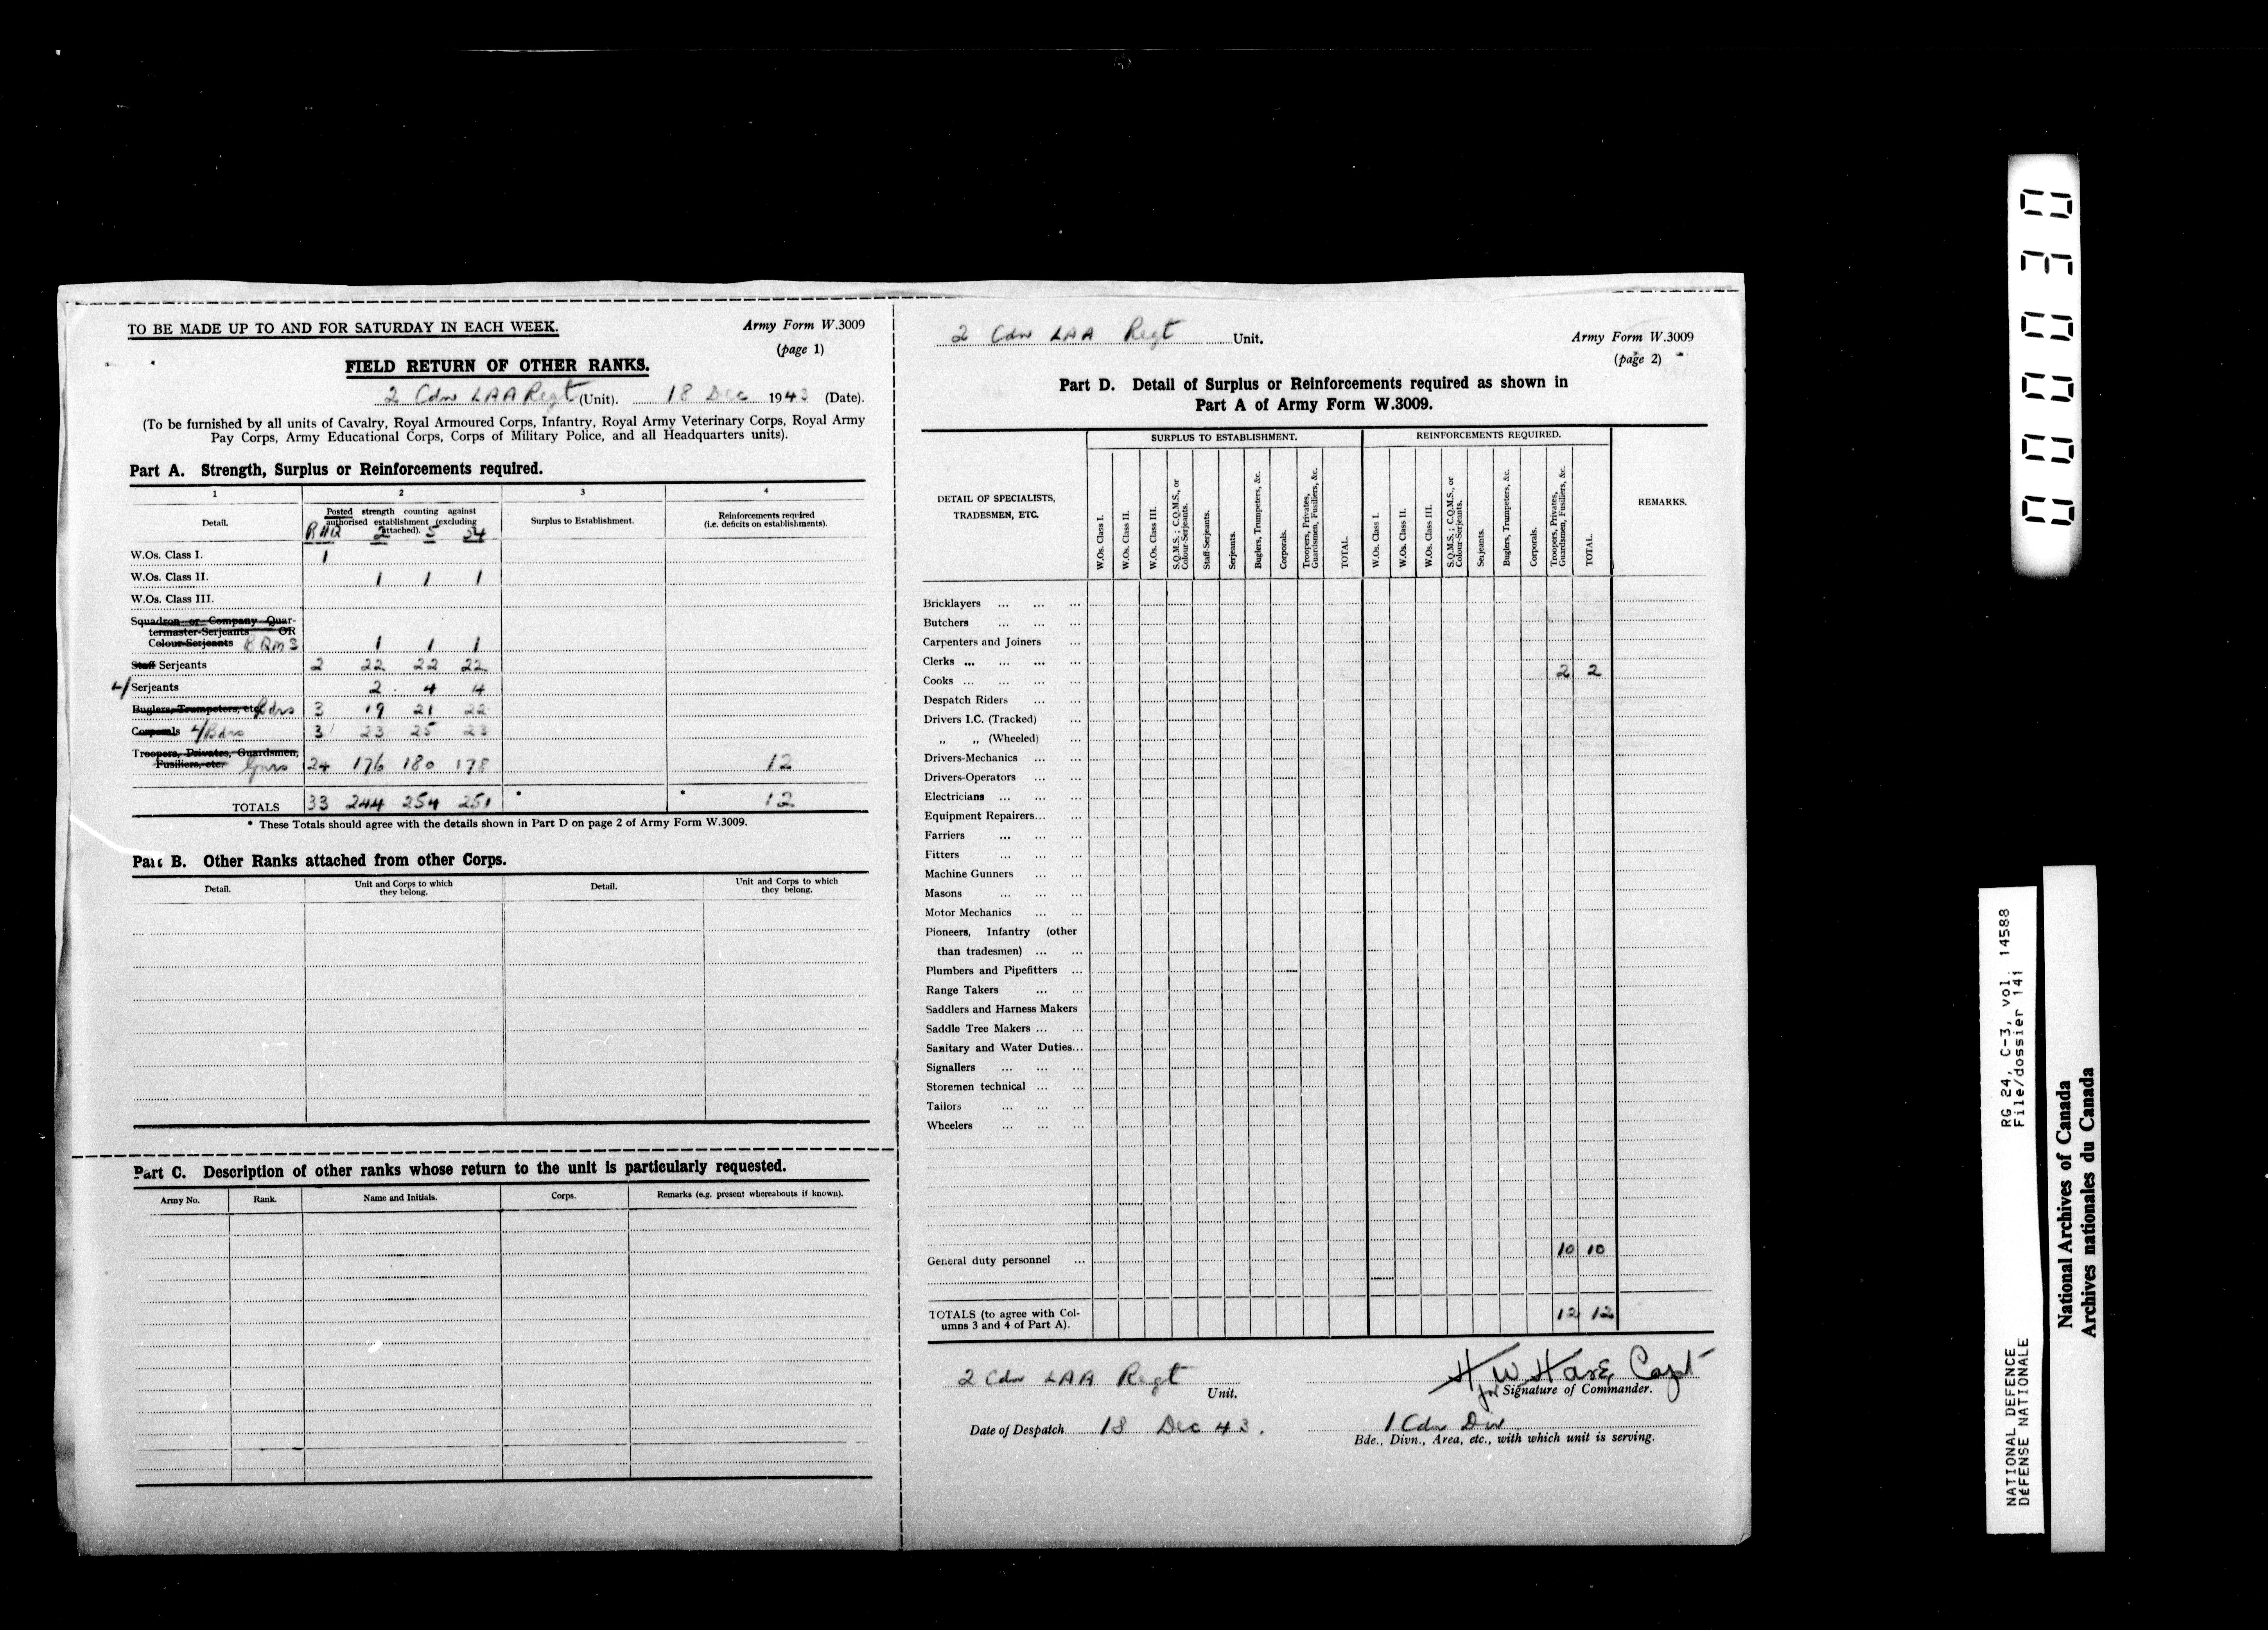 TO BE MADE UP TO AND FOR SATURDAY IN EACH WEEK.
Army Form W.3009
(page 1)
FIELD RETURN OF OTHER RANKS.
2 Cdn LAA Regt (Unit). 18 Dec 1943 (Date).
(To be furnished by all units of Cavalry, Royal Armoured Corps, Infantry, Royal Army Veterinary Corps, Royal Army
Pay Corps, Army Educational Corps, Corps of Military Police, and all Headquarters units).
Part A. Strength, Surplus or Reinforcements required.
1 2 3 4
Detail.
Posted strength counting against
authorised establishment (excluding
attached).
RHQ 2 5 54
Surplus to Establishment.
Reinforcements required
(i.e. deficits on establishments).
W.Os. Class I. 1
W.Os. Class II. 1 1 1
W.Os. Class III.
Squadron or Company Quar-
termaster-Serjeants OR
Colour-Serjeants BQMS 1 1 1
Staff Serjeants 2 22 22 22
L/Serjeants 2 4 4
Buglers, Trumpeters, etc. Bdrs 3 19 21 22
Corporals L/Bdrs 3 23 25 23
Troopers, Privates, Guardsmen,
Fusiliers, etc. Gnrs 24 176 180 178 12
TOTALS 33 244 254 251 * * 12
* These Totals should agree with the details shown in Part D on page 2 of Army Form W.3009.
Part B. Other Ranks attached from other Corps.
Detail.
Unit and Corps to which
they belong.
Detail.
Unit and Corps to which
they belong.
Part C. Description of other ranks whose return to the unit is particularly requested.
Army No. Rank. Name and Initials. Corps. Remarks (e.g. present whereabouts if known).
2 Cdn LAA Regt Unit.
Army Form W.3009
(page 2)
Part D. Detail of Surplus or Reinforcements required as shown in
Part A of Army Form W.3009.
DETAIL OF SPECIALISTS,
TRADESMEN, ETC.
SURPLUS TO ESTABLISHMENT.
W.Os. Class I.
W.Os. Class II.
W.Os. Class III.
S.Q.M.S.; C.Q.M.S., or
Colour-Serjeants.
Staff-Serjeants.
Serjeants.
Buglers, Trumpeters, &c.
Corporals.
Troopers, Privates,
Guardsmen, Fusiliers, &c.
TOTAL.
REINFORCEMENTS REQUIRED.
W.Os. Class I.
W.Os. Class II.
W.Os. Class III.
S.Q.M.S.; C.Q.M.S., or
Colour-Serjeants.
Serjeants.
Buglers, Trumpeters, &c.
Corporals.
Troopers, Privates,
Guardsmen, Fusiliers, &c.
TOTAL.
REMARKS.
Bricklayers ... ... ...
Butchers ... ... ...
Carpenters and Joiners ...
Clerks ... ... ... ...
Cooks ... ... ... ... 2 2
Despatch Riders ... ...
Drivers I.C. (Tracked) ...
„ „ (Wheeled) ...
Drivers-Mechanics ... ...
Drivers-Operators ... ...
Electricians ... ... ...
Equipment Repairers... ...
Farriers ... ... ...
Fitters ... ... ...
Machine Gunners ... ...
Masons ... ... ...
Motor Mechanics ... ...
Pioneers, Infantry (other
than tradesmen) ... ...
Plumbers and Pipefitters ...
Range Takers ... ...
Saddlers and Harness Makers
Saddle Tree Makers ... ...
Sanitary and Water Duties...
Signallers ... ... ...
Storemen technical ... ...
Tailors ... ... ...
Wheelers ... ... ...
General duty personnel ... 10 10
TOTALS (to agree with Col-
umns 3 and 4 of Part A). 12 12
2 Cdn LAA Regt
Unit.
H W Hare Capt
for Signature of Commander.
Date of Despatch 18 Dec 43.
1 Cdn Div
Bde., Divn., Area, etc., with which unit is serving.
000030
NATIONAL DEFENCE
DÉFENSE NATIONALE
RG 24, C-3, vol. 14588
File/dossier 141
National Archives of Canada
Archives nationales du Canada